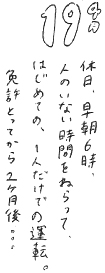 19才
休日、早朝6時、
人のいない時間をねらって、
はじめての、1人だけでの運転。
免許とってから2ヶ月後…